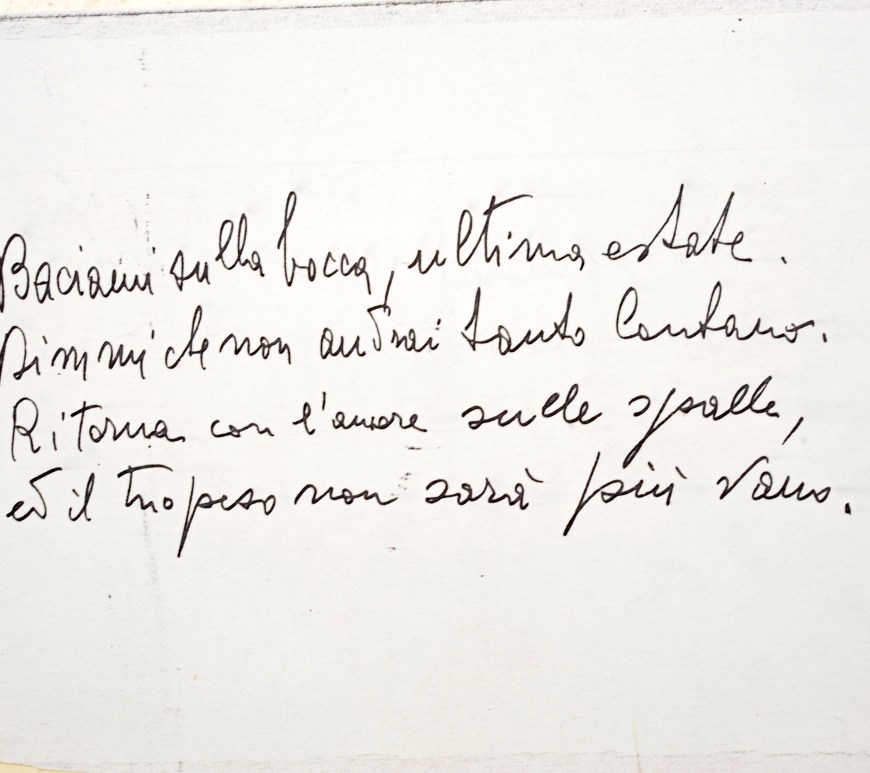 Baciami sulla bocca, ultima estate.
Dimmi che non andrai tanto lontano.
Ritorna con l'amore sulle spalle,
ed il tuo peso non sarà più vano.